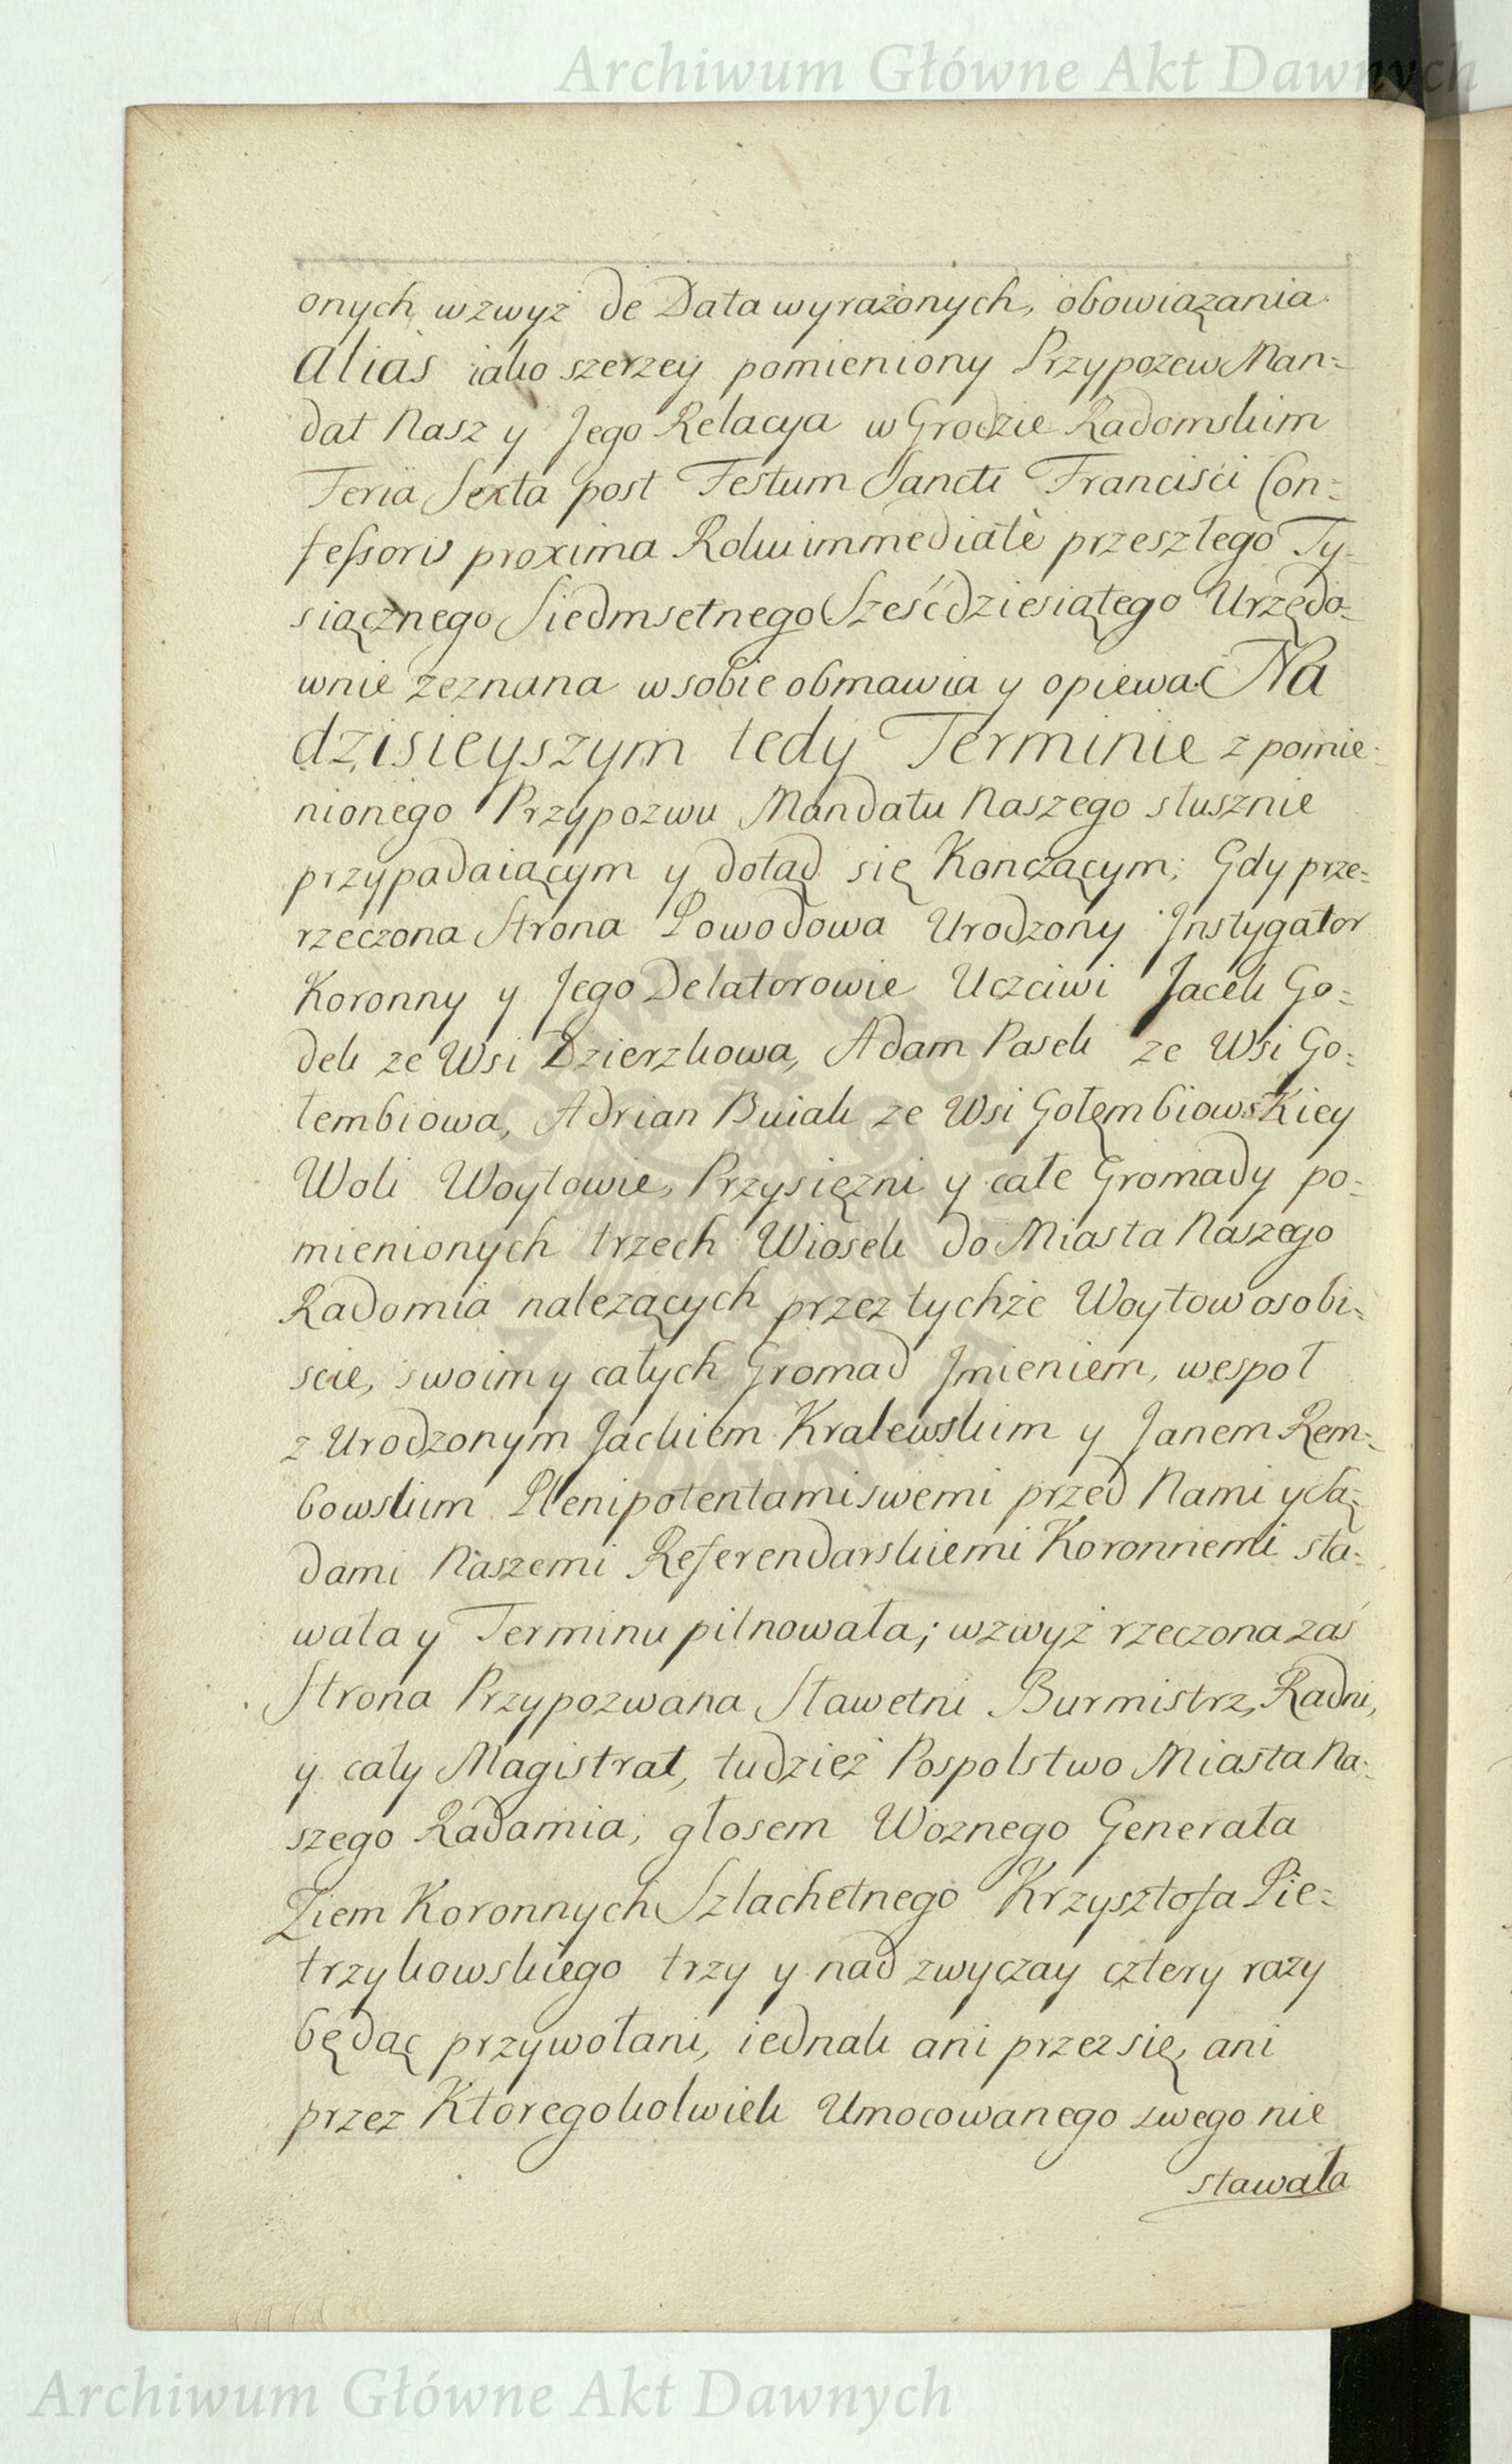 Archiwum Główne Akt Dawnych
onych wzwyż de Data wyrażonych, obowiązania
Alias iako szerzey pomieniony Przypozew Man=
dat Nasz y Jego Relacya w Grodzie Radomskim
Feria Sexta post Festum Sancti Francisci Con=
fessoris proxima Roku immediatè przeszłego Ty=
siącznego Siedmsetnego Sześćdziesiątego Urzędo=
wnie zeznana w sobie obmawia y opiewa. Na
dzisieyszym tedy Terminie z pomie=
nionego Przypozwu Mandatu Naszego słusznie
przypadaiącym y dotąd się Konczącym; Gdy prze=
rzeczona Strona Powodowa Urodzony Instygator
Koronny y Jego Delatorowie Uczciwi Jacek Go=
dek ze Wsi Dzierzkowa, Adam Pasek ze Wsi Go=
łembiowa, Adrian Buiak ze Wsi GołęmbiowsKiey
Woli Woytowie, Przysiężni y całe Gromady po=
mienionych trzech Wiosek do Miasta Naszego
Radomia należących przez tychże Woytow osobi=
scie, swoim y całych Gromad Jmieniem, wespoł
z Urodzonym Jackiem Kralewskim y Janem Rem=
bowskim Plenipotentami swemi przed Nami y Są=
dami Naszemi Referendarskiemi Koronnemi sta=
wała y Terminu pilnowała; wzwyż rzeczona zaś
Strona Przypozwana Sławetni Burmistrz, Radni,
y cały Magistrat, tudzież Pospolstwo Miasta Na=
szego Radamia, głosem Woznego Generała
Ziem Koronnych Szlachetnego Krzysztofa Pie=
trzykowskiego trzy y nad zwyczay cztery razy
będąc przywołani, iednak ani przez się, ani
przez Ktoregokolwiek Umocowanego swego nie
stawała
Archiwum Główne Akt Dawnych